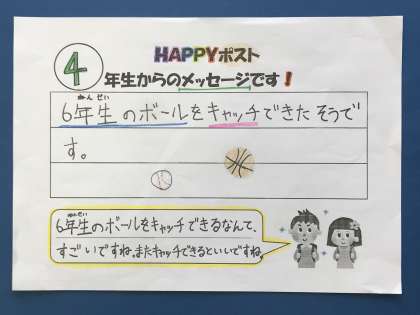 HAPPYポスト
④年生からのメッセージです！
ねんせい
6年生のボールをキャッチできたそうで
す。
ねんせい
6年生のボールをキャッチできるなんて、
すごいですね。またキャッチできるといいですね。